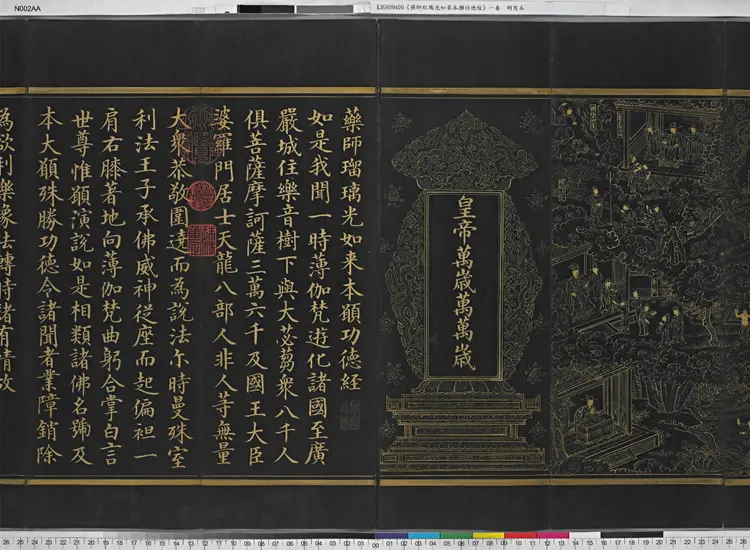 N002AA
《藥師琉璃光如來本願功德經》一卷 明寫本
皇帝萬歲萬萬歲
藥師瑠璃光如来本願功德經
如是我聞一時薄伽梵遊化諸國至廣
嚴城住樂音樹下與大苾芻衆八千人
俱菩薩摩訶薩三萬六千及國王大臣
婆羅門居士天龍八部人非人等無量
大衆恭敬圍遶而為說法尒時曼殊室
利法王子承佛威神從座而起偏袒一
肩右膝著地向薄伽梵曲躬合掌白言
世尊惟願演說如是相類諸佛名號及
本大願殊勝功德令諸聞者業障銷除
為欲利樂像法轉時諸有情故